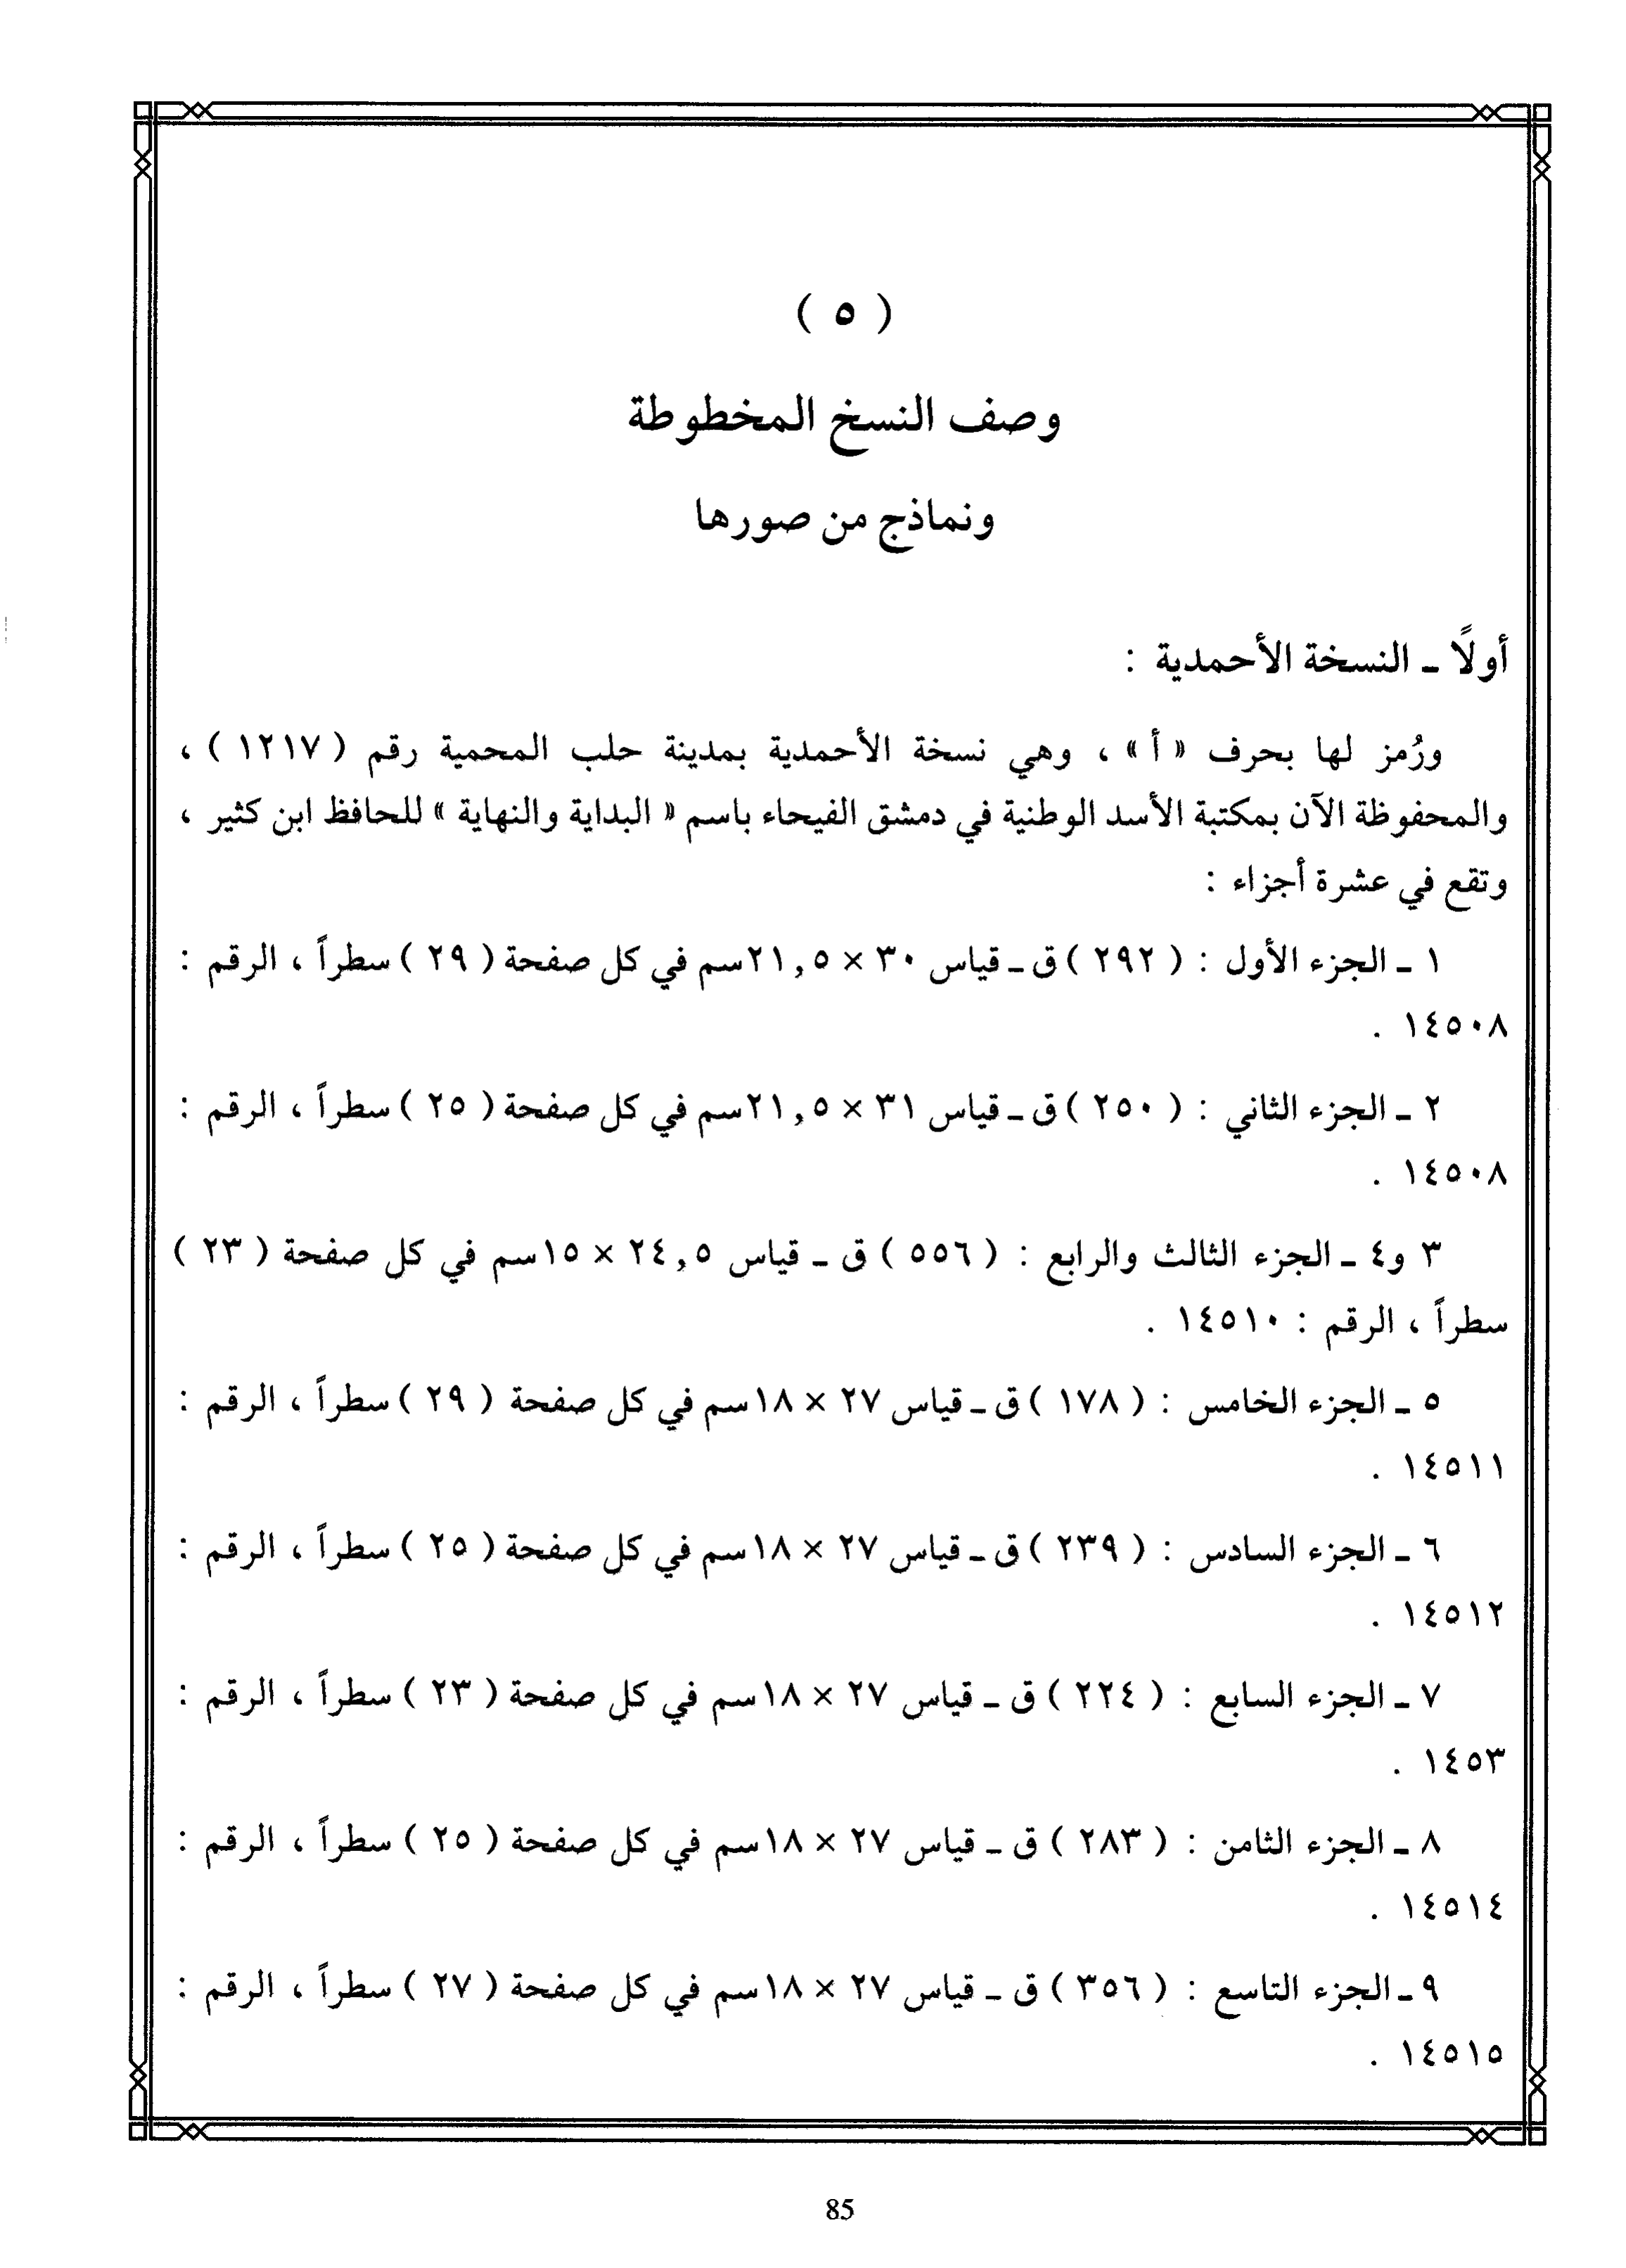 ( ٥ )
وصف النسخ المخطوطة
ونماذج من صورها
أولًا ـ النسخة الأحمدية :
ورُمز لها بحرف « أ » ، وهي نسخة الأحمدية بمدينة حلب المحمية رقم ( ١٢١٧ ) ،
والمحفوظة الآن بمكتبة الأسد الوطنية في دمشق الفيحاء باسم « البداية والنهاية » للحافظ ابن كثير ،
وتقع في عشرة أجزاء :
١ ـ الجزء الأول : ( ٢٩٢ ) ق ـ قياس ٣٠ × ٢١,٥سم في كل صفحة ( ٢٩ ) سطراً ، الرقم :
١٤٥٠٨ .
٢ ـ الجزء الثاني : ( ٢٥٠ ) ق ـ قياس ٣١ × ٢١,٥سم في كل صفحة ( ٢٥ ) سطراً ، الرقم :
١٤٥٠٨ .
٣ و٤ ـ الجزء الثالث والرابع : ( ٥٥٦ ) ق ـ قياس ٢٤,٥ × ١٥سم في كل صفحة ( ٢٣ )
سطراً ، الرقم : ١٤٥١٠ .
٥ ـ الجزء الخامس : ( ١٧٨ ) ق ـ قياس ٢٧ × ١٨سم في كل صفحة ( ٢٩ ) سطراً ، الرقم :
١٤٥١١ .
٦ ـ الجزء السادس : ( ٢٣٩ ) ق ـ قياس ٢٧ × ١٨سم في كل صفحة ( ٢٥ ) سطراً ، الرقم :
١٤٥١٢ .
٧ ـ الجزء السابع : ( ٢٢٤ ) ق ـ قياس ٢٧ × ١٨سم في كل صفحة ( ٢٣ ) سطراً ، الرقم :
١٤٥٣ .
٨ ـ الجزء الثامن : ( ٢٨٣ ) ق ـ قياس ٢٧ × ١٨سم في كل صفحة ( ٢٥ ) سطراً ، الرقم :
١٤٥١٤ .
٩ ـ الجزء التاسع : ( ٣٥٦ ) ق ـ قياس ٢٧ × ١٨سم في كل صفحة ( ٢٧ ) سطراً ، الرقم :
١٤٥١٥ .
85